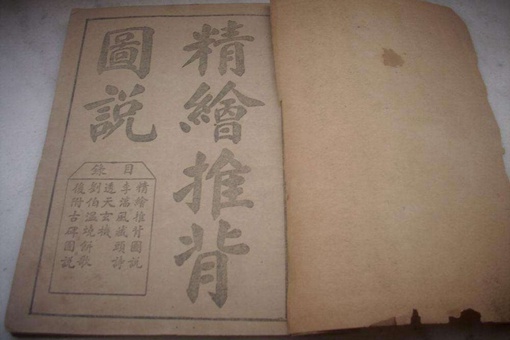 精繪推背
圖説
目錄
精繪推背圖説
李淳風藏頭詩
透天玄機
劉伯温燒餅歌
後附古碑圖説